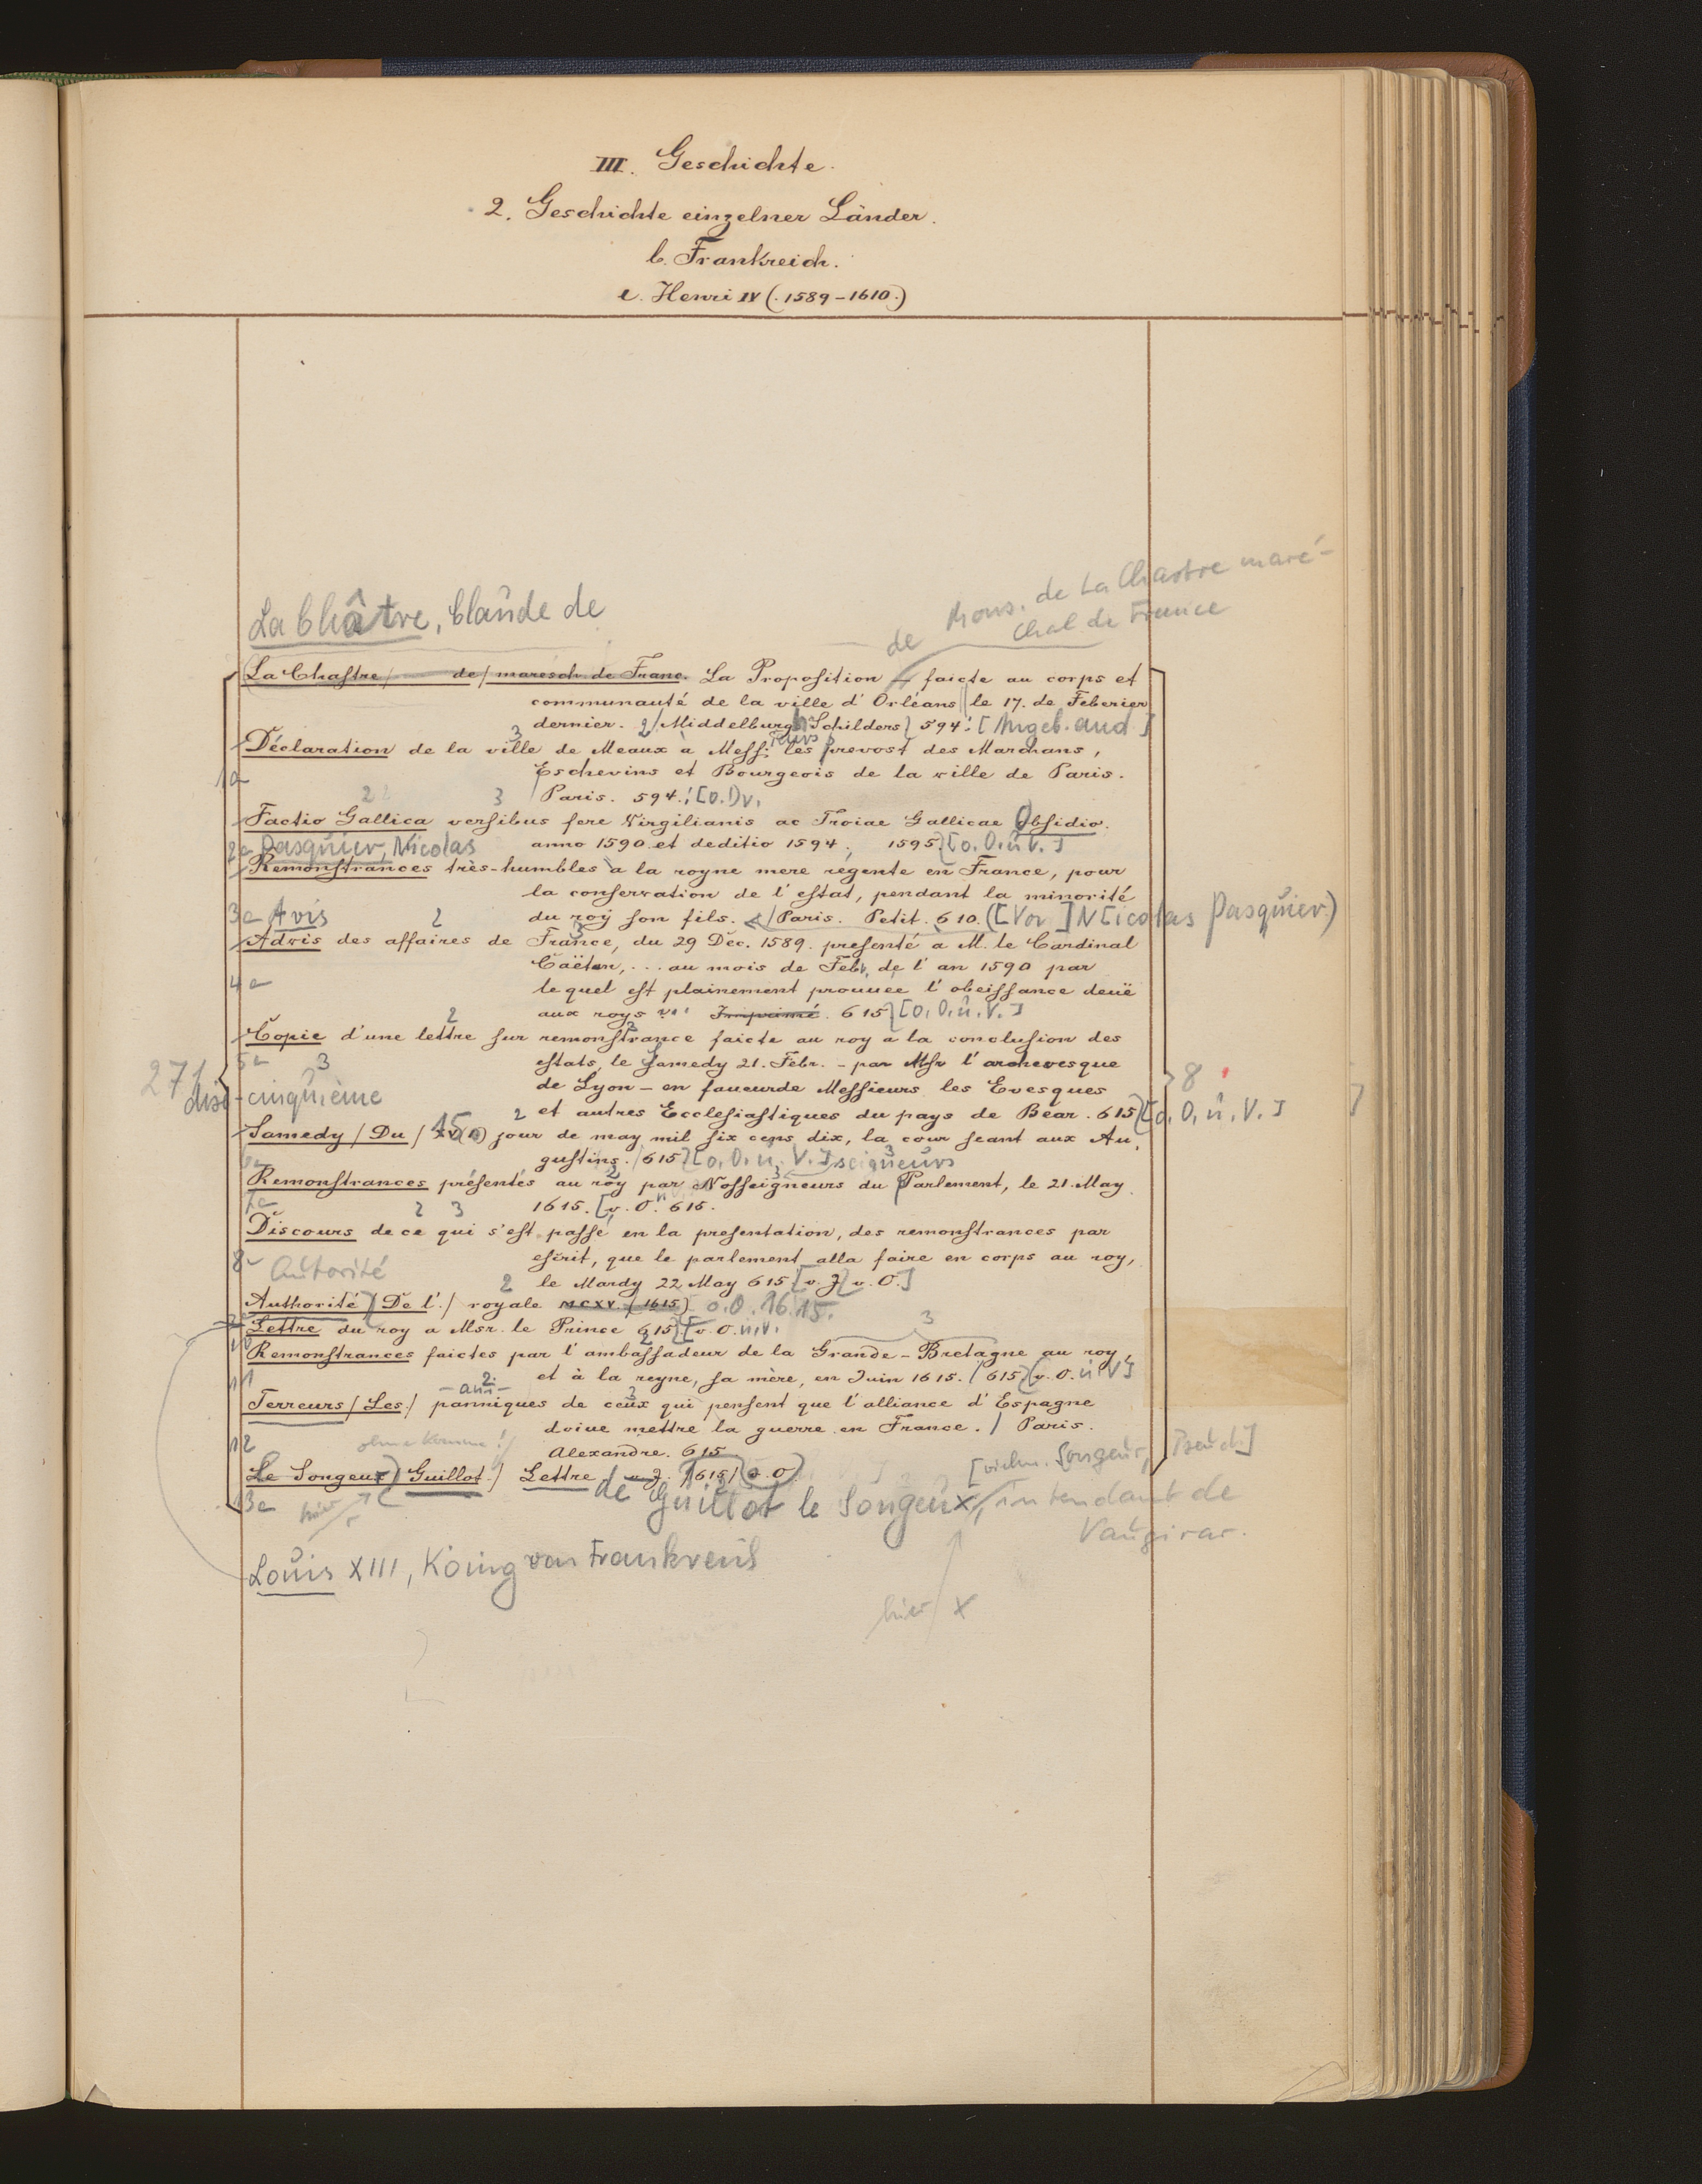 III. Geschichte.
2. Geschichte einzelner Länder.
b. Frankreich.
e. Henri IV (.1589-1610.)
Mons. de La Chastre maré-
chal de France
La Châtre, Claude de
de
La Chaſtre / de / mareſch. de Franc. La Propoſition — faicte au corps et
communauté de la ville d'Orléans le 17. de Feberier
dernier. 2 / Middelburgh Schilders 594. [Angeb. and.]
3
Déclaration de la ville de Meaux à Meſſ. les prevost des Marchans,
1a Eschevins et Bourgeois de la ville de Paris.
Paris. 594.
2 3
Factio Gallica verſibus fere Virgilianis ac Troiae Gallicae Obſidio.
2a Pasquier, Nicolas anno 1590 et deditio 1594. 1595. [o. O. u. V.]
Remonſtrances très-humbles à la royne mere régente en France, pour
la conſervation de l'eſtat, pendant la minorité
3a Avis 2 du roy ſon fils. / Paris. Petit. 610. ([Von] N[icolas Pasquier)
Advis des affaires de France, du 29 Déc. 1589. preſenté a M. le Cardinal
Caëtan, ... au mois de Febv. de l'an 1590 par
4a lequel eſt plainement prouuee l'obeiſſance deuë
2 aux roys Imprimé. 615 [o. O. u. V.]
Copie d'une lettre ſur remonſtrance faicte au roy à la concluſion des
5a 3 eſtats, le Samedy 21. Febr. - par Mſr l'archevesque
271 8
disi-cinquième de Lyon - en faueurde Meſſieurs les Eveſques
2 et autres Eccleſiaſtiques du pays de Béar. 615 [o. O. u. V.]
Samedy / Du / 15 jour de may mil ſix cens dix, la cour ſeant aux Au-
guſtins. / 615 [o. O. u. V.] seigneurs
Remonſtrances préſentés au roy par Noſſeigneurs du Parlement, le 21. May.
7a 2 3 1615. [v. O. 615.
Discours de ce qui s'eſt paſſé en la preſentation, des remonſtrances par
eſcrit, que le parlement alla faire en corps au roy,
8a Autorité 2 le Mardy 22 May 615 [v. J. v. O.]
Authorité / De l' / royale MCXV. (1615) o. O. 1615.
Lettre du roy a Mſr. le Prince 615 [v. O. u. V.
3
10 Remonſtrances faictes par l'ambaſſadeur de la Grande-Bretagne au roy,
11 et à la reyne, ſa mère, en Juin 1615. / 615 [v. O. u. V]
- ann -
Terreurs / Les / panniques de ceux qui penſent que l'alliance d'Eſpagne
doive mettre la guerre en France. / Paris.
12 ohne Komma! Alexandre. 615
[vielm. Songeur, Pseud.]
Le Songeux) Guillot. / Lettre v. J. 1615 (v. O.)
13a hier de Guillot le Songeux, intendant de
Vaugirar.
Louis XIII, König von Frankreich
hier x